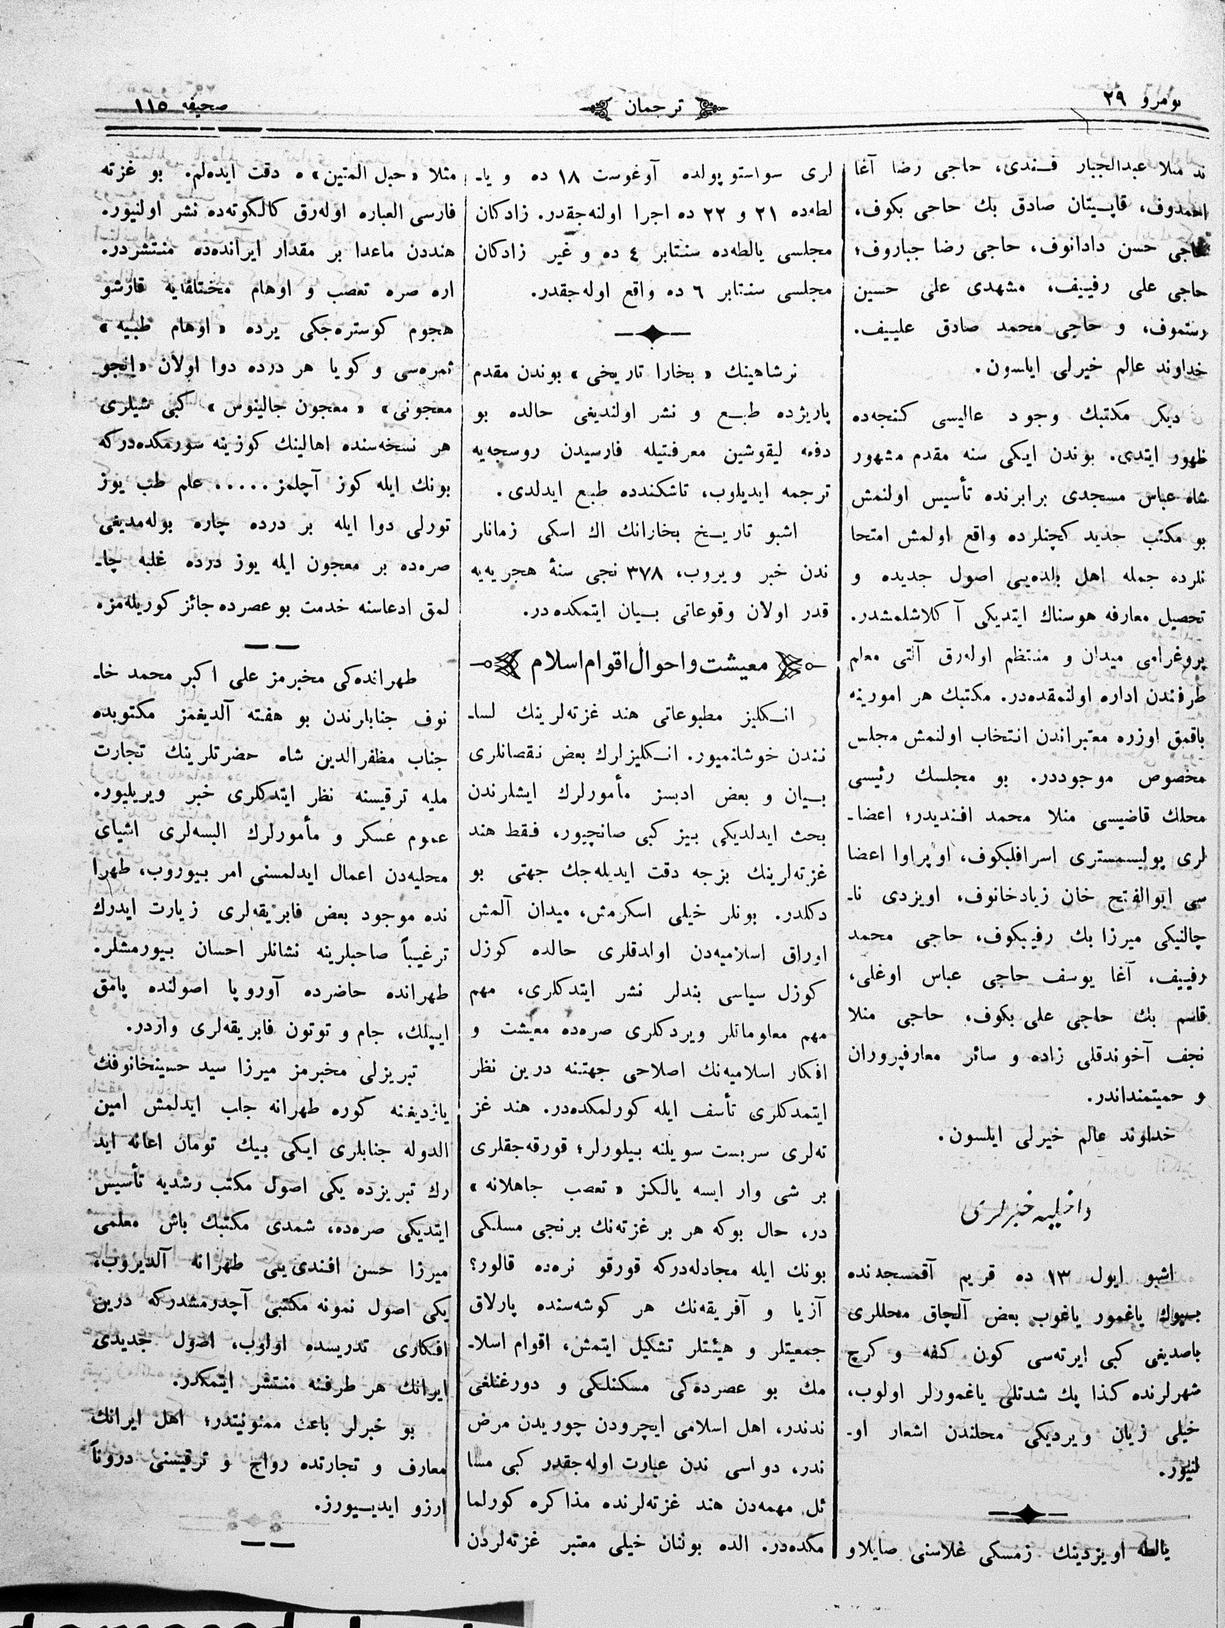 نومرو ٢٩
ترجمان
صحيفه ١١٥
ند منلا عبدالجبار فندى، حاجى رضا آغا
احمدوف، قاپيتان صادق بك حاجى بكوف،
حاجى حسن دادانوف، حاجى رضا جباروف؛
حاجى على رفييف، مشهدى على حسين
رستموف، و حاجى محمد صادق علييف.
خداوند عالم خيرلى ايلسون.
ديكر مكتبك وجود عاليسى كنجه‌ده
ظهور ايتدى. بوندن ايكى سنه مقدم مشهور
شاه عباس مسجدى برابرنده تأسيس اولنمش
بو مكتب جديد كچنلرده واقع اولمش امتحا
نلرده جمله اهل بلده‌يى اصول جديده و
تحصيل معارفه هوسناك ايتديكى آكلاشلمشدر.
پروغرامى ميدان و منتظم اوله‌رق آلتى معلم
طرفندن اداره اولنمقده‌در. مكتبك هر امورينه
باقمق اوزره معتبراندن انتخاب اولنمش مجلس
مخصوص موجوددر. بو مجلسك رئيسى
محلك قاضيسى منلا محمد افنديدر؛ اعضا۔
لرى پوليسمسترى اسرافلبكوف، اوپراوا اعضا
سى ابوالفتح خان زيادخانوف، اويزدى نا۔
چالنيكى ميرزا بك رفيبكوف، حاجى محمد
رفييف، آغا يوسف حاجى عباس اوغلى،
قاسم بك حاجى على بكوف، حاجى منلا
نجف آخوندقلى زاده و سائر معارفپروران
و حميتمنداندر.
خداوند عالم خيرلى ايلسون.
داخليه خبرلرى
اشبو ايول ١٣ ده قريم آقمسجدنده
بيوك ياغمور ياغوب بعض آلچاق محللرى
باصديغى كبى ايرته‌سى كون كفه و كرچ
شهرلرنده كذا پك شدتلى ياغمورلر اولوب،
خيلى زيان ويرديكى محلندن اشعار او۔
لنيور.
يالطه اويزدينك زمسكى غلاسنى صايلاو
لرى سواستوپولده آوغوست ١٨ ده و يا۔
لطه‌ده ٢١ و ٢٢ ده اجرا اولنه‌جقدر. زادكان
مجلسى يالطه‌ده سنتابر ٤ ده و غير زادكان
مجلسى سنتابر ٦ ده واقع اوله‌جقدر.
نرشاهينك « بخارا تاريخى » بوندن مقدم
پاريژده طبع و نشر اولنديغى حالده بو
دفعه ليقوشين معرفتيله فارسيدن روسجه‌يه
ترجمه ايديلوب، تاشكندده طبع ايدلدى.
اشبو تاريخ بخارانك اك اسكى زمانلر
ندن خبر ويروب، ٣٧٨ نجى سنۀ هجريه‌يه
قدر اولان وقوعاتى بيان ايتمكده‌در.
معيشت و احوال اقوام اسلام
انكليز مطبوعاتى هند غزته‌لرينك لسا۔
نندن خوشلنميور. انكليزلرك بعض نقصانلرى
بيان و بعض ادبسز مأمورلرك ايشلرندن
بحث ايدلديكى بيز كبى صانچيور، فقط هند
غزته‌لرينك بزجه دقت ايديله‌جك جهتى بو
دكلدر. بونلر خيلى اسكرمش، ميدان آلمش
اوراق اسلاميه‌دن اولدقلرى حالده كوزل
كوزل سياسى بندلر نشر ايتدكلرى، مهم
مهم معلوماتلر ويردكلرى صره‌ده معيشت و
افكار اسلاميه‌نك اصلاحى جهتنه درين نظر
ايتمدكلرى تأسف ايله كورلمكده‌در. هند غز
ته‌لرى سربست سويلنه بيلورلر؛ قورقه‌جقلرى
بر شى وار ايسه يالكز « تعصب جاهلانه »
در، حال بوكه هر بر غزته‌نك برنجى مسلكى
بونك ايله مجادله‌دركه قورقو نره‌ده قالور؟
آزيا و آفريقه‌نك هر كوشه‌سنده پارلاق
جمعيتلر و هيئتلر تشكيل ايتمش، اقوام اسلا۔
مك بو عصرده‌كى مسكنلكى و دورغنلغى
ندندر، اهل اسلامى ايچرودن چوريدن مرض
ندر، دواسى ندن عبارت اوله‌جقدر كبى مسا
ئل مهمه‌دن هند غزته‌لرنده مذاكره كورلما
مكده‌در. الده بولنان خيلى معتبر غزته‌لردن
مثلا «حبل المتين» ه دقت ايده‌لم. بو غزته
فارسى العباره اوله‌رق كالكوته‌ده نشر اولنيور.
هنددن ماعدا بر مقدار ايرانده‌ده منتشردر.
اره صره تعصب و اوهام مختلفايه قارشو
هجوم كوستره‌جكى يرده « اوهام طبيه »
ثمره‌سى و كويا هر درده دوا اولان « انجو
معجونى » « معجون جالينوس » كبى شيلرى
هر نسخه‌سنده اهالينك كوزينه سورمكده‌دركه
بونك ايله كوز آچلمز..... علم طب يوز
تورلى دوا ايله بر درده چاره بوله‌مديغى
صره‌ده بر معجون ايله يوز درده غلبه چا۔
لمق ادعاسنه خدمت بو عصرده جائز كوريله‌مزه
طهرانده‌كى مخبرمز على اكبر محمد خا۔
نوف جنابارندن بو هفته آلديغمز مكتوبده
جناب مظفرالدين شاه حضرتلرينك تجارت
مليه ترقيسنه نظر ايتدكلرى خبر ويريليور.
عموم عسكر و مأمورلرك البسه‌لرى اشياى
محليه‌دن اعمال ايدلمسنى امر بيوروب، طهرا
نده موجود بعض فابريقه‌لرى زيارت ايدرك
ترغيباً صاحبلرينه نشانلر احسان بيورمشلر.
طهرانده حاضرده آوروپا اصولنده پامق
ايپلك، جام و توتون فابريقه‌لرى واردر.
تبريزلى مخبرمز ميرزا سيد حسينخانوفك
يازديغنه كوره طهرانه جلب ايدلمش امين
الدوله جنابلرى ايكى بيك تومان اعانه ايد
رك تبريزده يكى اصول مكتب رشديه تأسيس
ايتديكى صره‌ده، شمدى مكتبك باش معلمى
ميرزا حسن افندى‌يى طهرانه آلديروب،
يكى اصول نمونه مكتبى آچدرمشدركه درين
افكارى تدريسده اولوب، اصول جديدى
ايرانك هر طرفنه منتشر ايتمكدر.
بو خبرلر باعث ممنونيتدر؛ اهل ايرانك
معارف و تجارتده رواج و ترقيسنى دروناً
ارزو ايديورز.